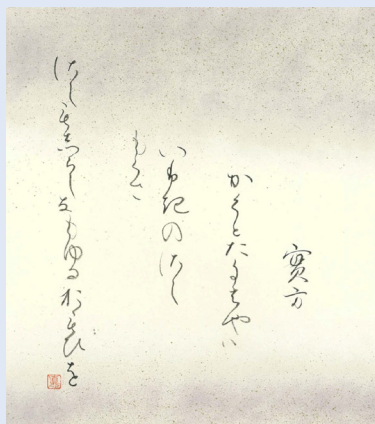 實方
かくとたにえやは
いふ記のさし
もくさ
さしもしらしなもゆるおもひを